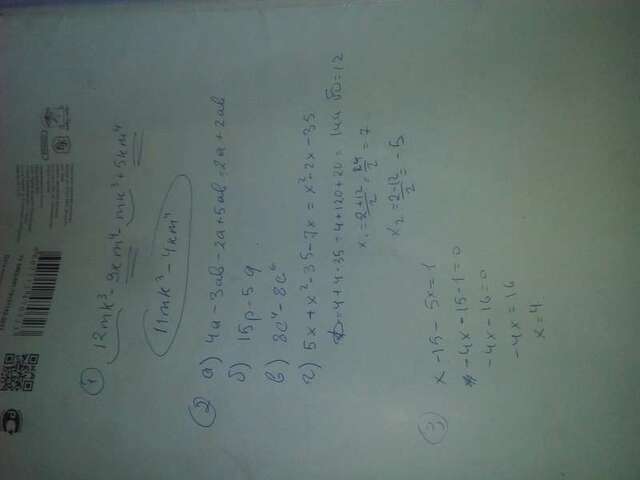 1 12mk³ - 9km⁴ - mk³ + 5km⁴
11mk³ - 4km⁴
2 а) 4a - 3ab - 2a + 5ab = 2a + 2ab
б) 15p - 5q
в) 8c⁴ - 8c⁶
г) 5x + x² - 35 - 7x = x² - 2x - 35
D = 4 + 4·35 = 4 + 120 + 20 = 144 √D = 12
x₁ = 2+12/2 = 14/2 = 7
x₂ = 2-12/2 = -5
3 x - 15 - 5x = 1
-4x - 15 - 1 = 0
-4x - 16 = 0
-4x = 16
x = 4